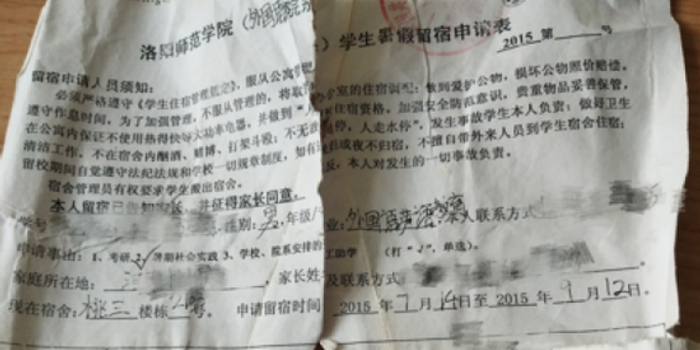 洛阳师范学院（外国语 学生暑假留宿申请表
2015 第 号
留宿申请人员须知：
必须严格遵守《学生住宿管理规定》，服从公寓管 室的住宿调配；做到爱护公物，损坏公物照价赔偿。
遵守作息时间。为了加强管理，不服从管理的，将取 住宿资格。加强安全防范意识，贵重物品妥善保管，
在公寓内保证不使用热得快等大功率电器，并做到“人 停，人走水停”，发生事故学生本人负责；做好卫生
清洁工作。不在宿舍内酗酒、赌博、打架斗殴；不无故 或夜不归宿，不擅自带外来人员到学生宿舍住宿；
留校期间自觉遵守法纪法规和学校一切规章制度，如有违反，本人对发生的一切事故负责。
宿舍管理员有权要求学生搬出宿舍。
本人留宿已告知家长，并征得家长同意。
学号 性别：男，年级/ 业：外国语 本人联系方式
申请事由：1、考研 2、暑期社会实践 3、学校、院系安排的 工助学 （打“√”，单选）。
家庭所在地： ，家长姓 及联系方式
现在宿舍：桃三 楼栋 号。 申请留宿时间 2015 年 7 月 14 日至 2015 年 9 月 12 日。